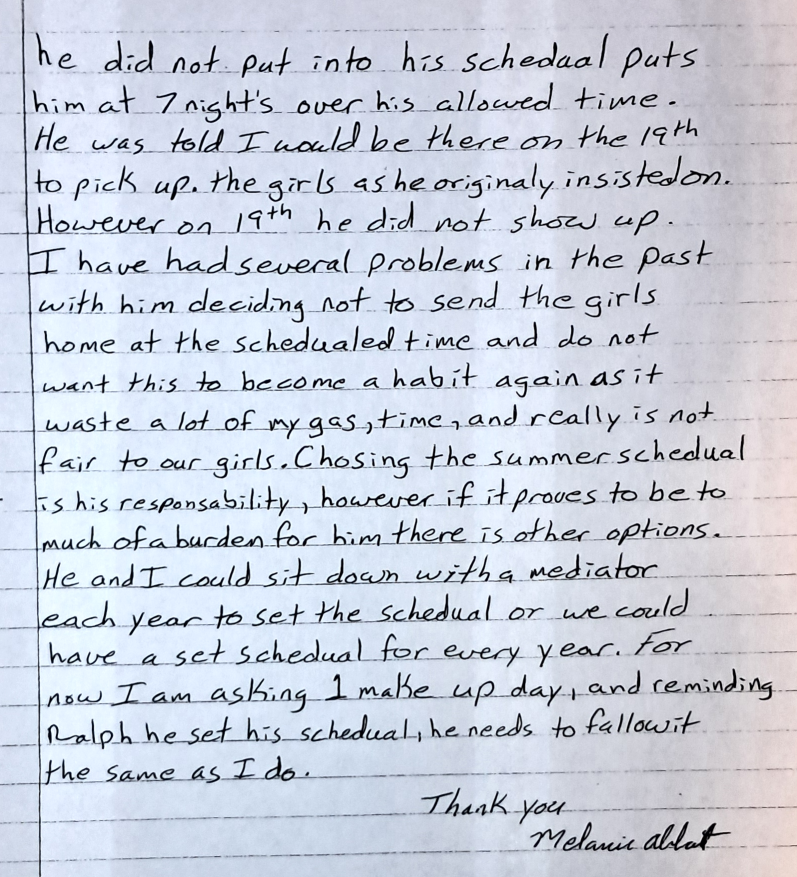 he did not put into his schedual puts
him at 7 night's over his allowed time.
He was told I would be there on the 19th
to pick up. the girls as he originaly insisted on.
However on 19th he did not show up.
I have had several problems in the past
with him deciding not to send the girls
home at the schedualed time and do not
want this to become a habit again as it
waste a lot of my gas, time, and really is not
fair to our girls. Chosing the summer schedual
is his responsability, however if it proves to be to
much of a burden for him there is other options.
He and I could sit down with a mediator
each year to set the schedual or we could
have a set schedual for every year. For
now I am asking 1 make up day, and reminding
Ralph he set his schedual, he needs to fallow it
the same as I do.
Thank you
Melanie